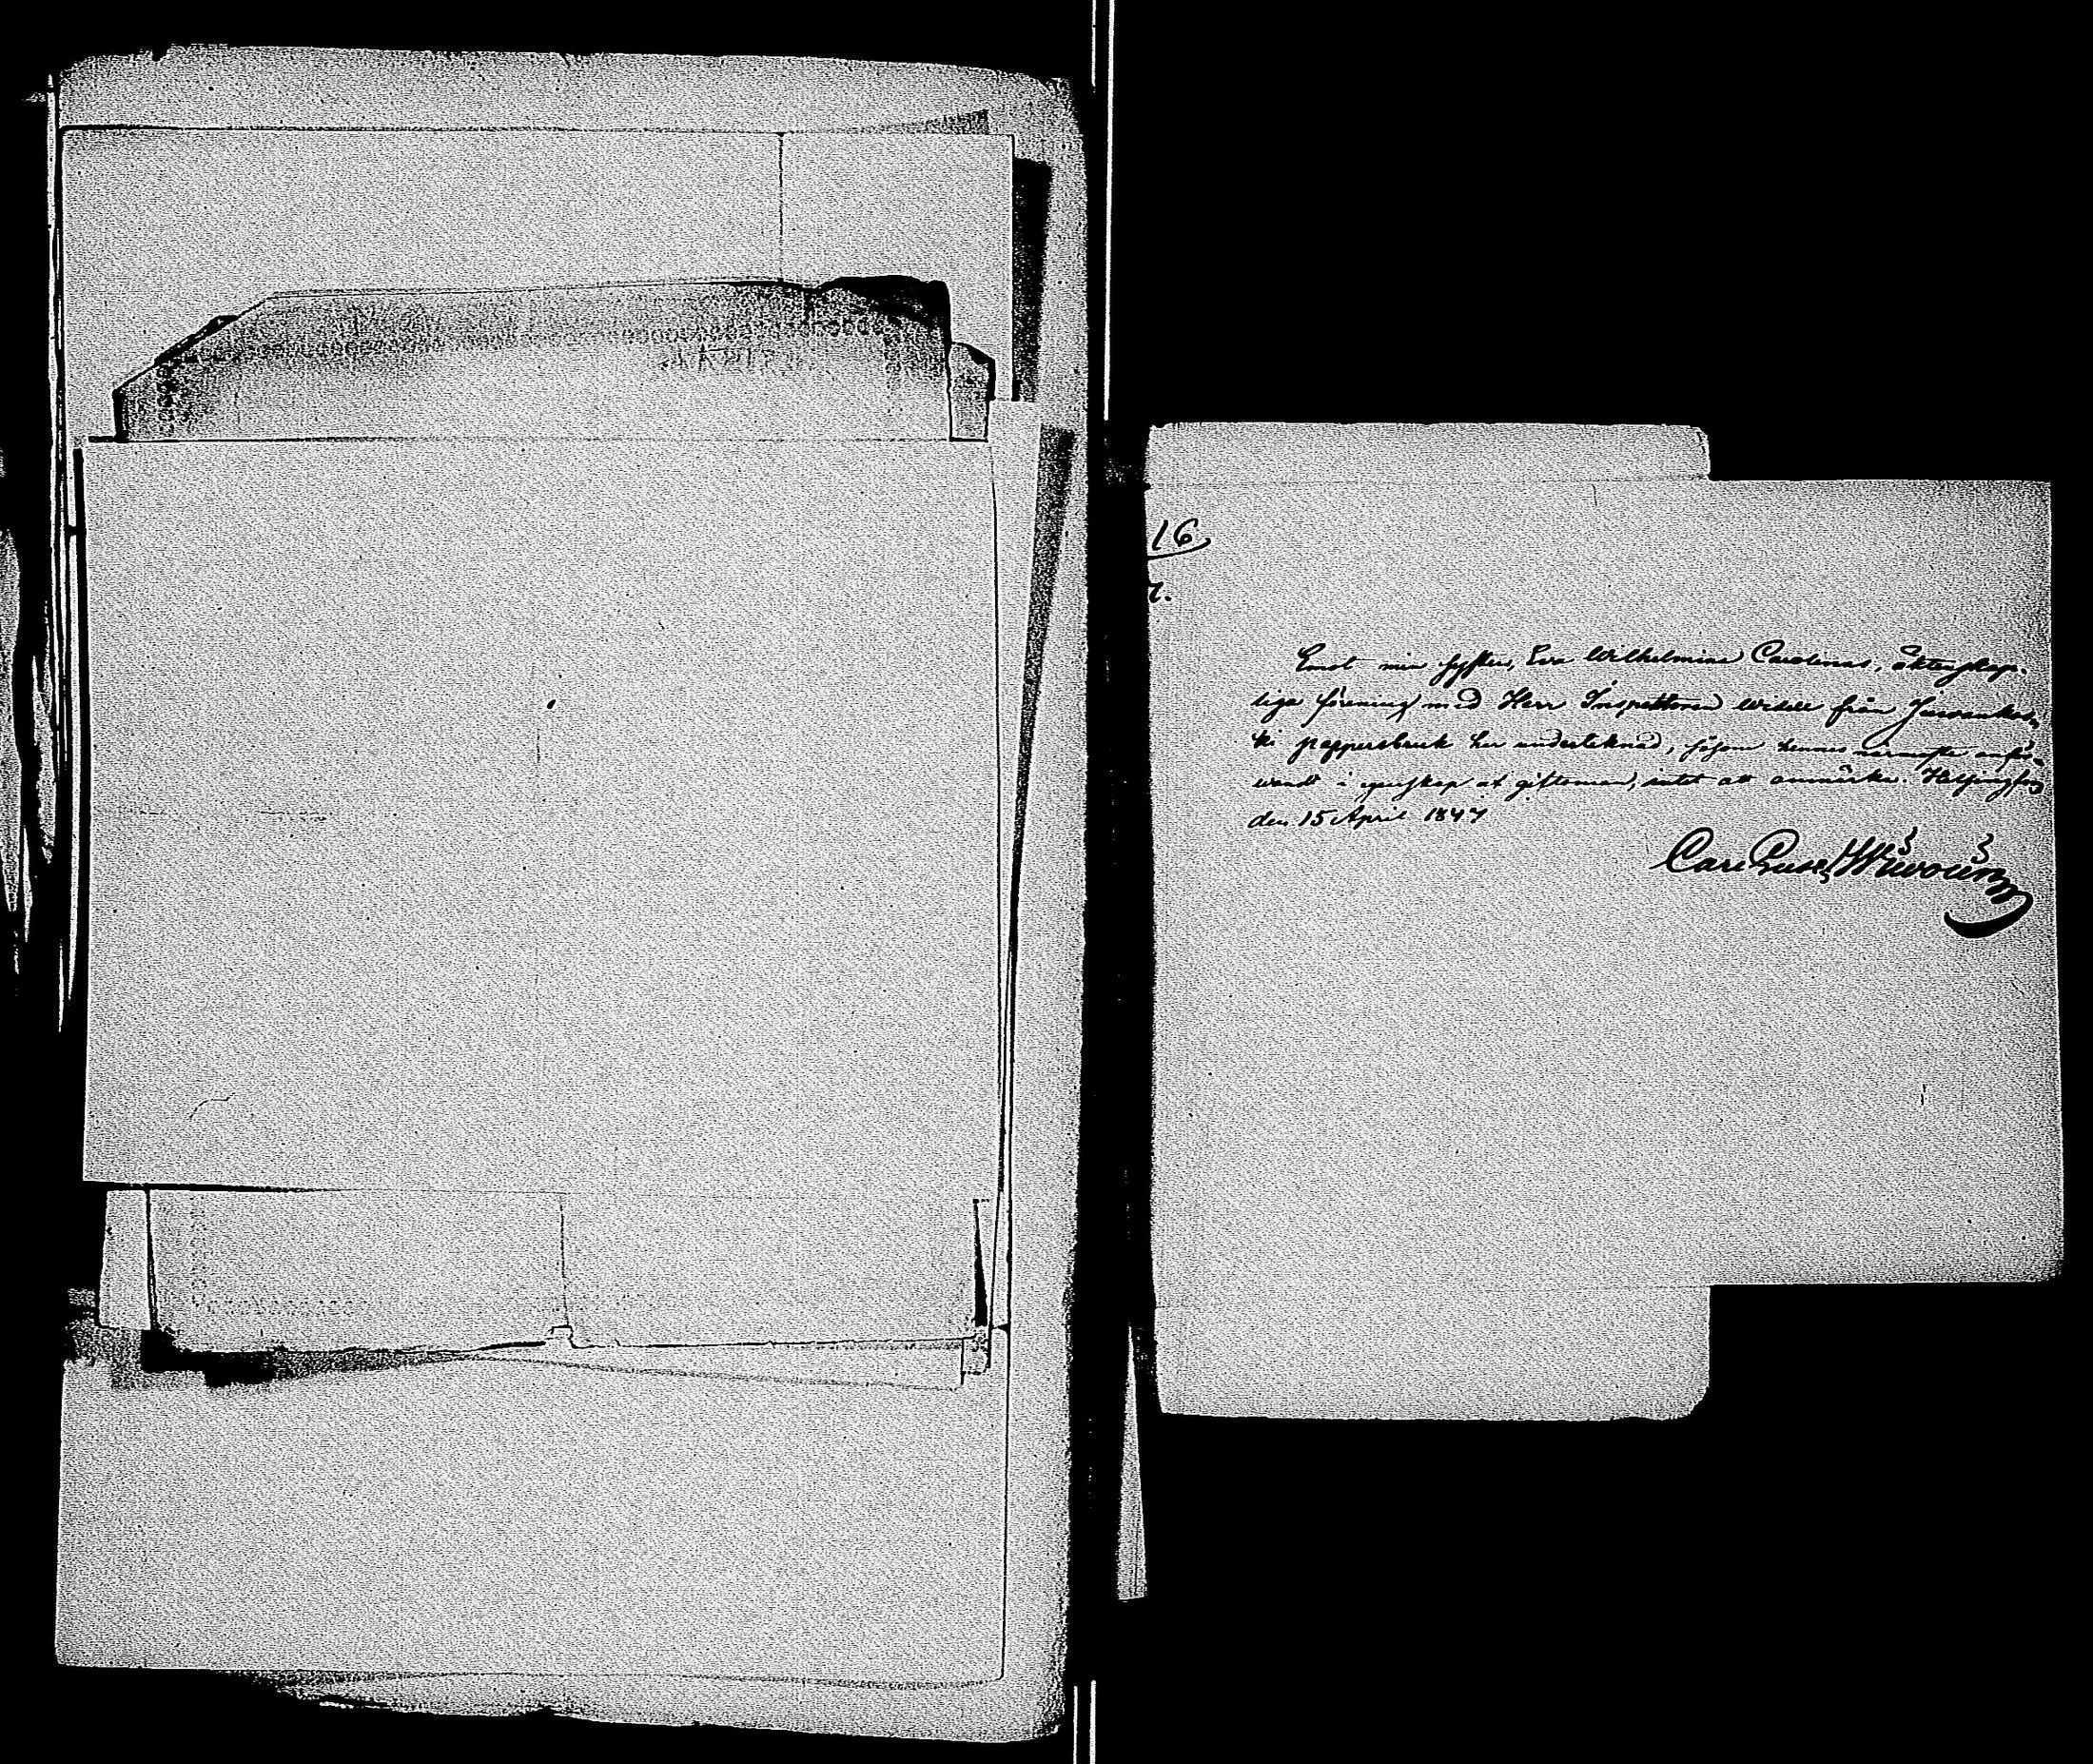 16
7.
Emot min syster, Eva Wilhelmina Carolinas, äktenskap-
liga förening med Herr Inspektoren Widell från Juvankos-
ki pappersbruk har undertecknad, såsom hennes närmaste anför-
wandt i egenskap af giftoman, intet att anmärka. Helsingfors
den 15 April 1847
Carl Gust.